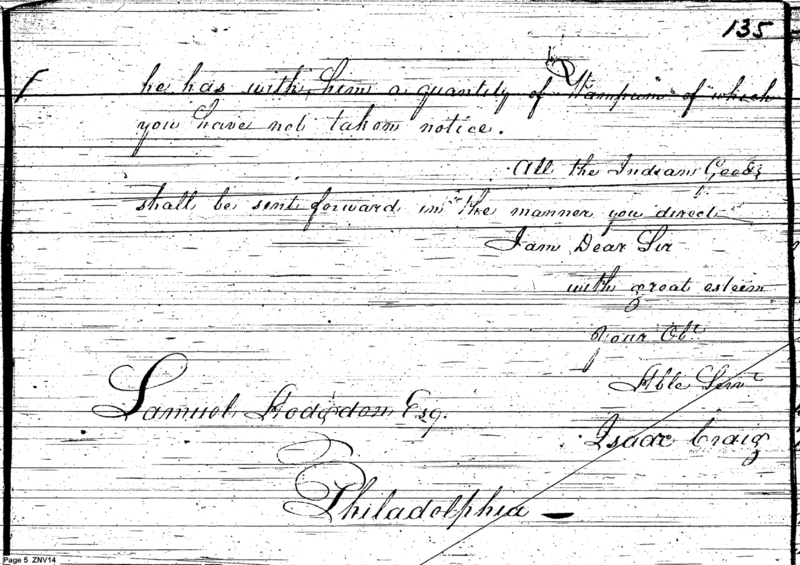 135
he has with him a quantity of Wampum of which
you have not taken notice.
All the Indian Goods
shall be sent forward in the manner you direct
I am Dear Sir
with great esteem
Your Obt
Hble Servt
Samuel Hodgdon Esq.
Isaac Craig
Philadelphia —
Page 5 ZNV14